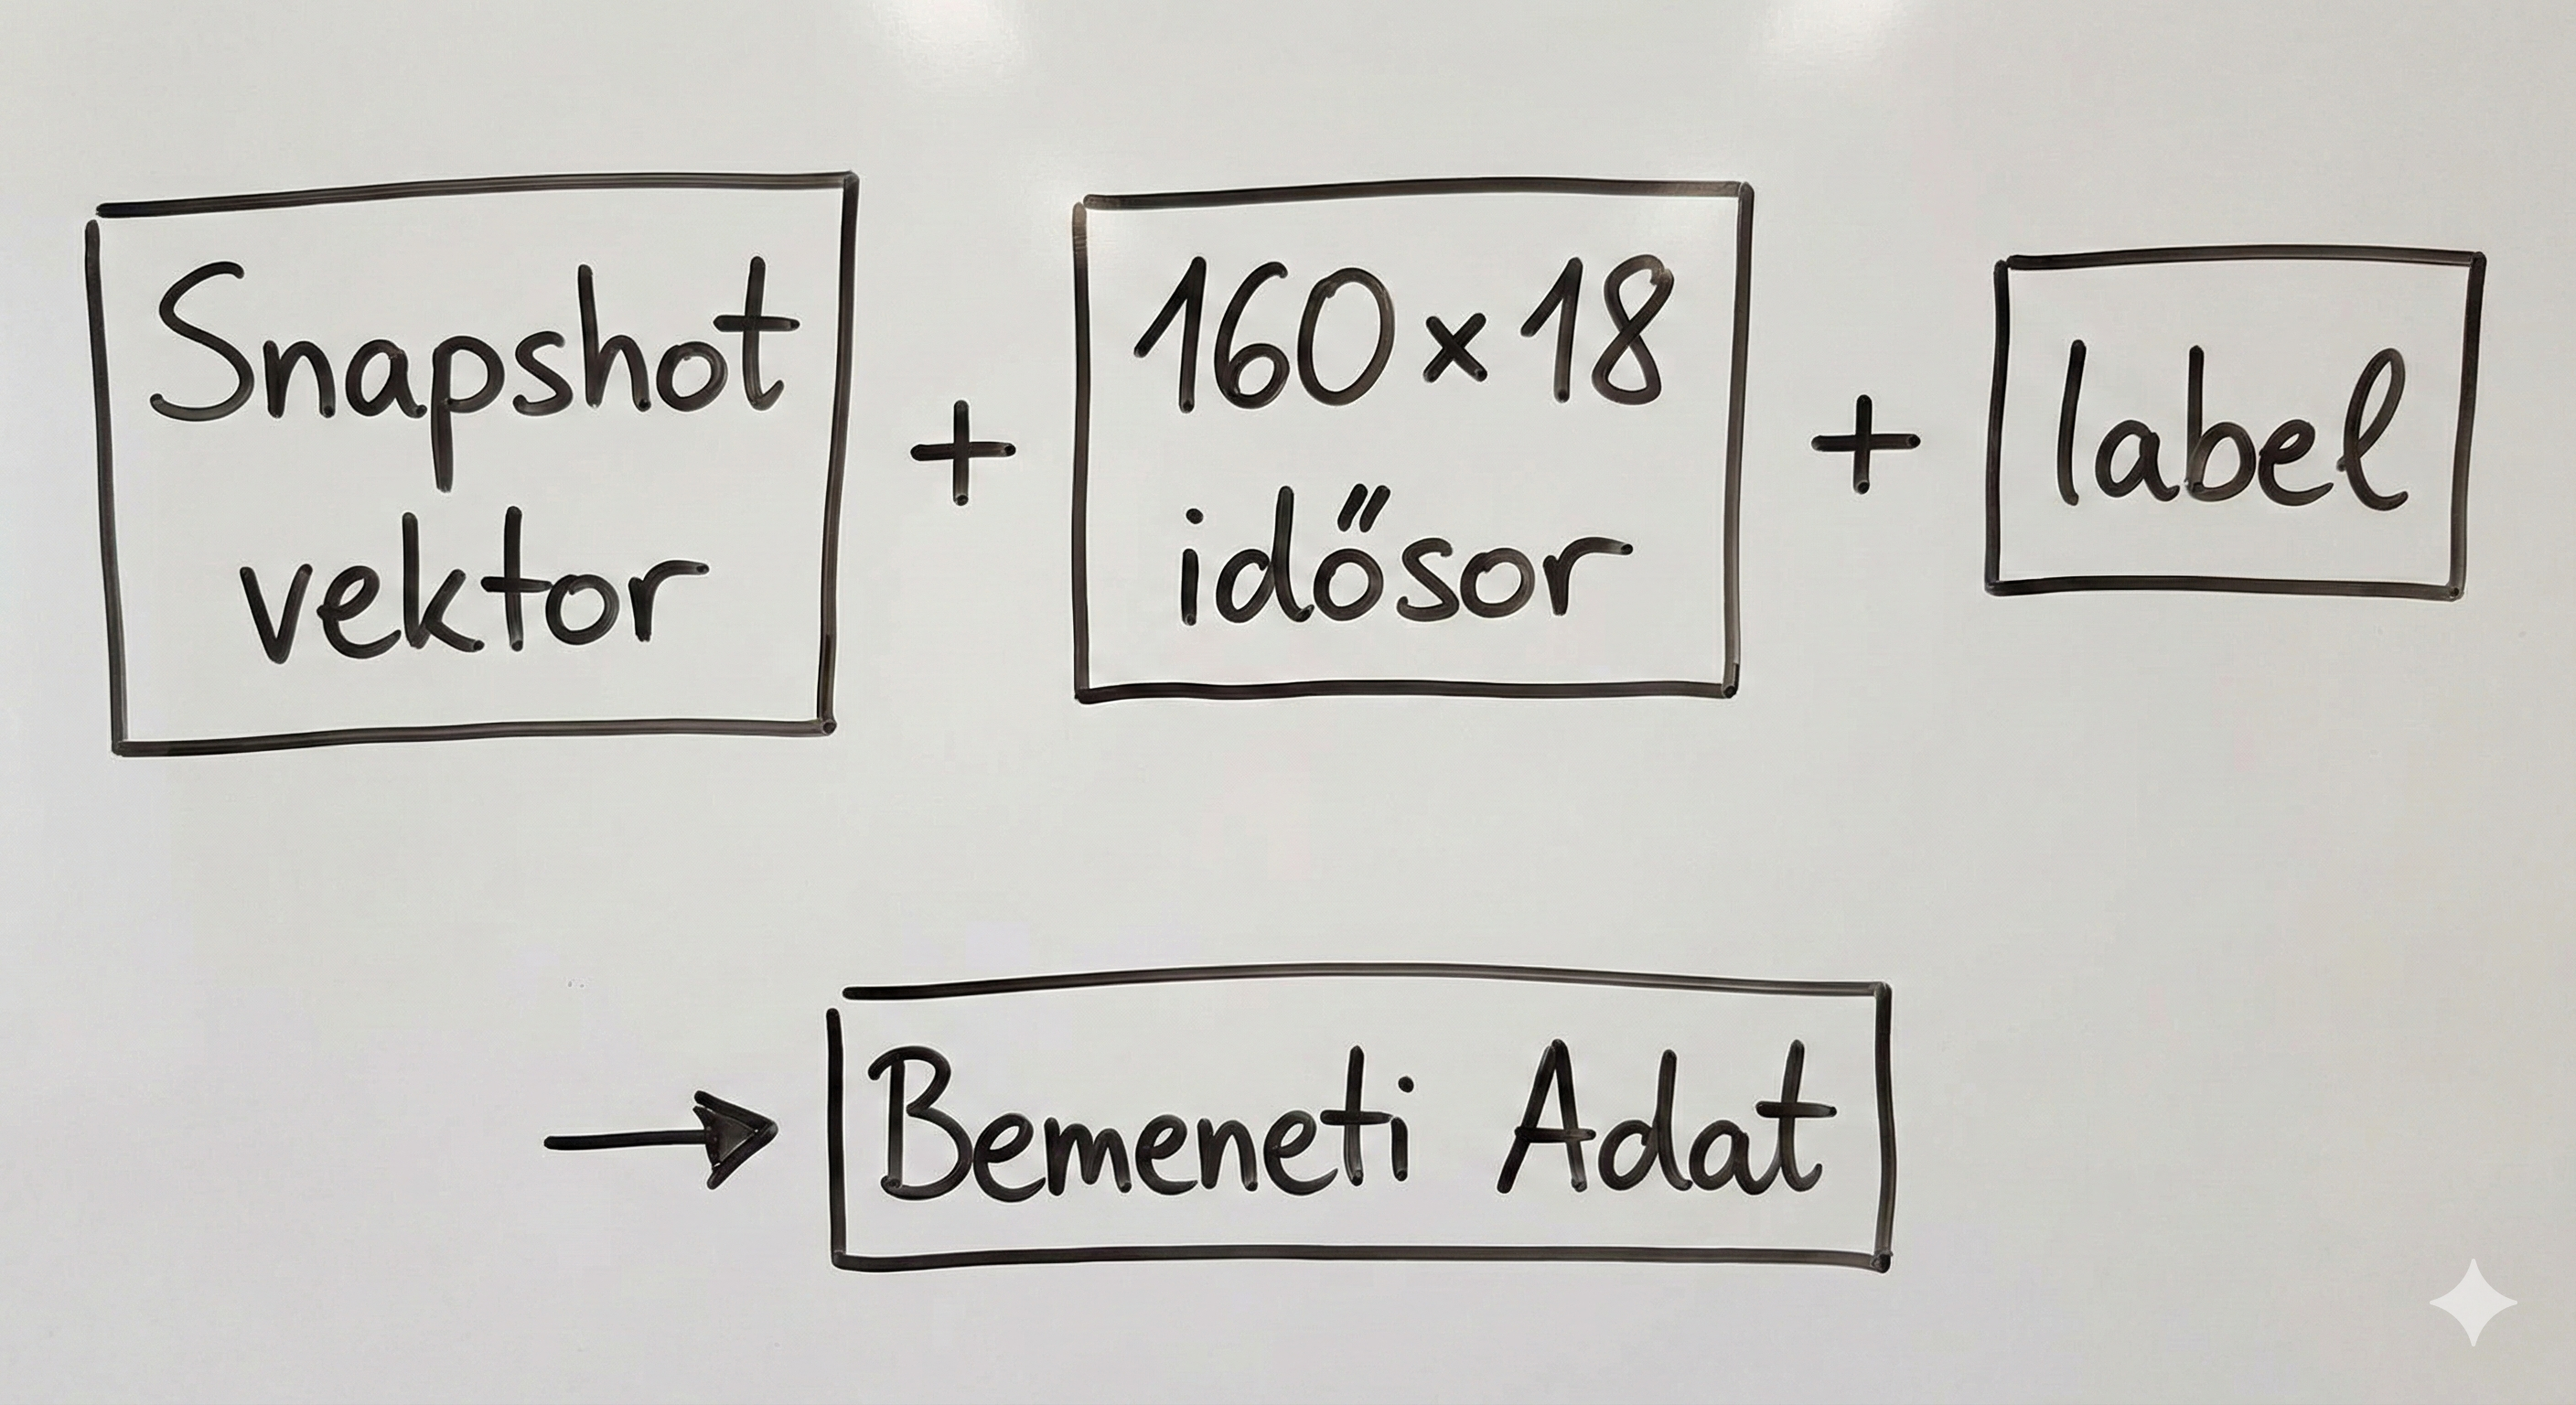 Snapshot
vektor
+
160×18
idősor
+
label
→ Bemeneti Adat